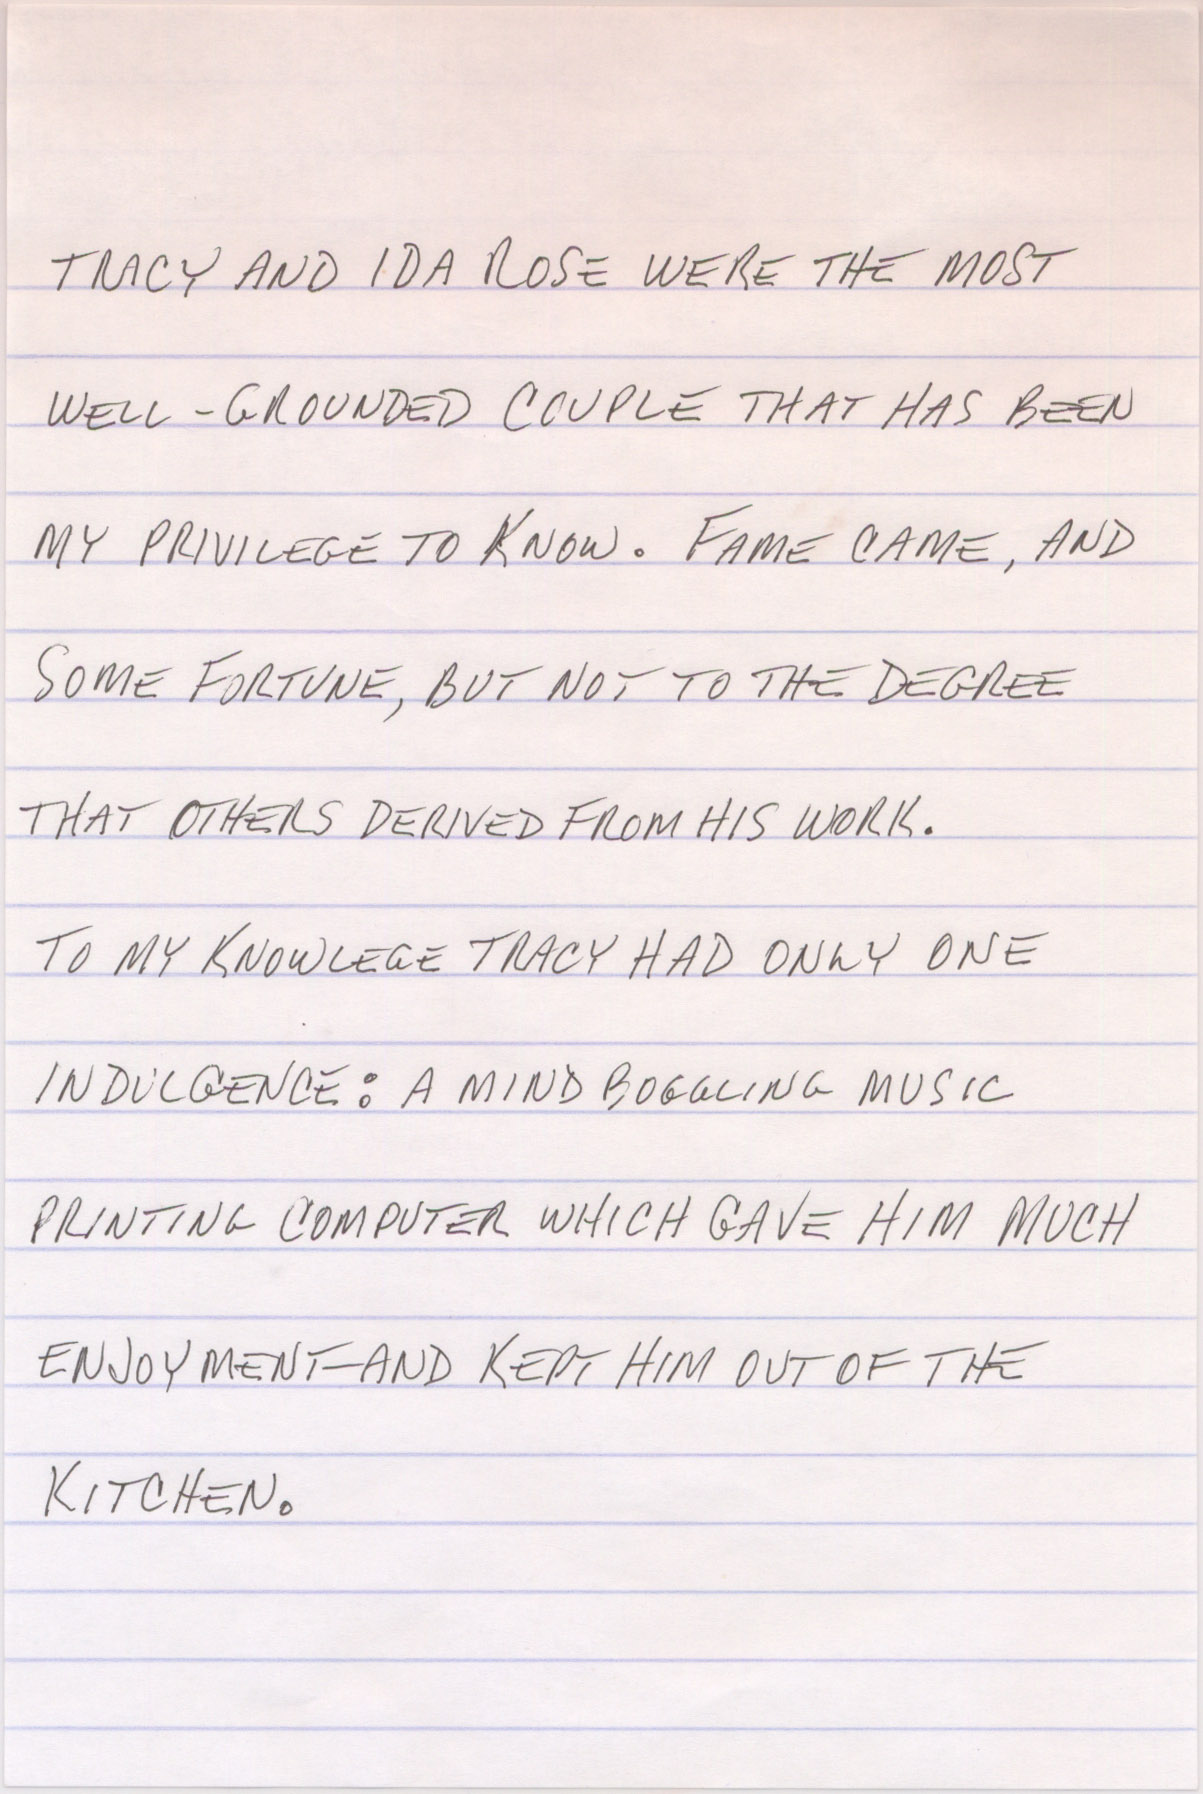 TRACY AND IDA ROSE WERE THE MOST
WELL-GROUNDED COUPLE THAT HAS BEEN
MY PRIVILEGE TO KNOW. FAME CAME, AND
SOME FORTUNE, BUT NOT TO THE DEGREE
THAT OTHERS DERIVED FROM HIS WORK.
TO MY KNOWLEGE TRACY HAD ONLY ONE
INDULGENCE: A MIND BOGGLING MUSIC
PRINTING COMPUTER WHICH GAVE HIM MUCH
ENJOYMENT—AND KEPT HIM OUT OF THE
KITCHEN.